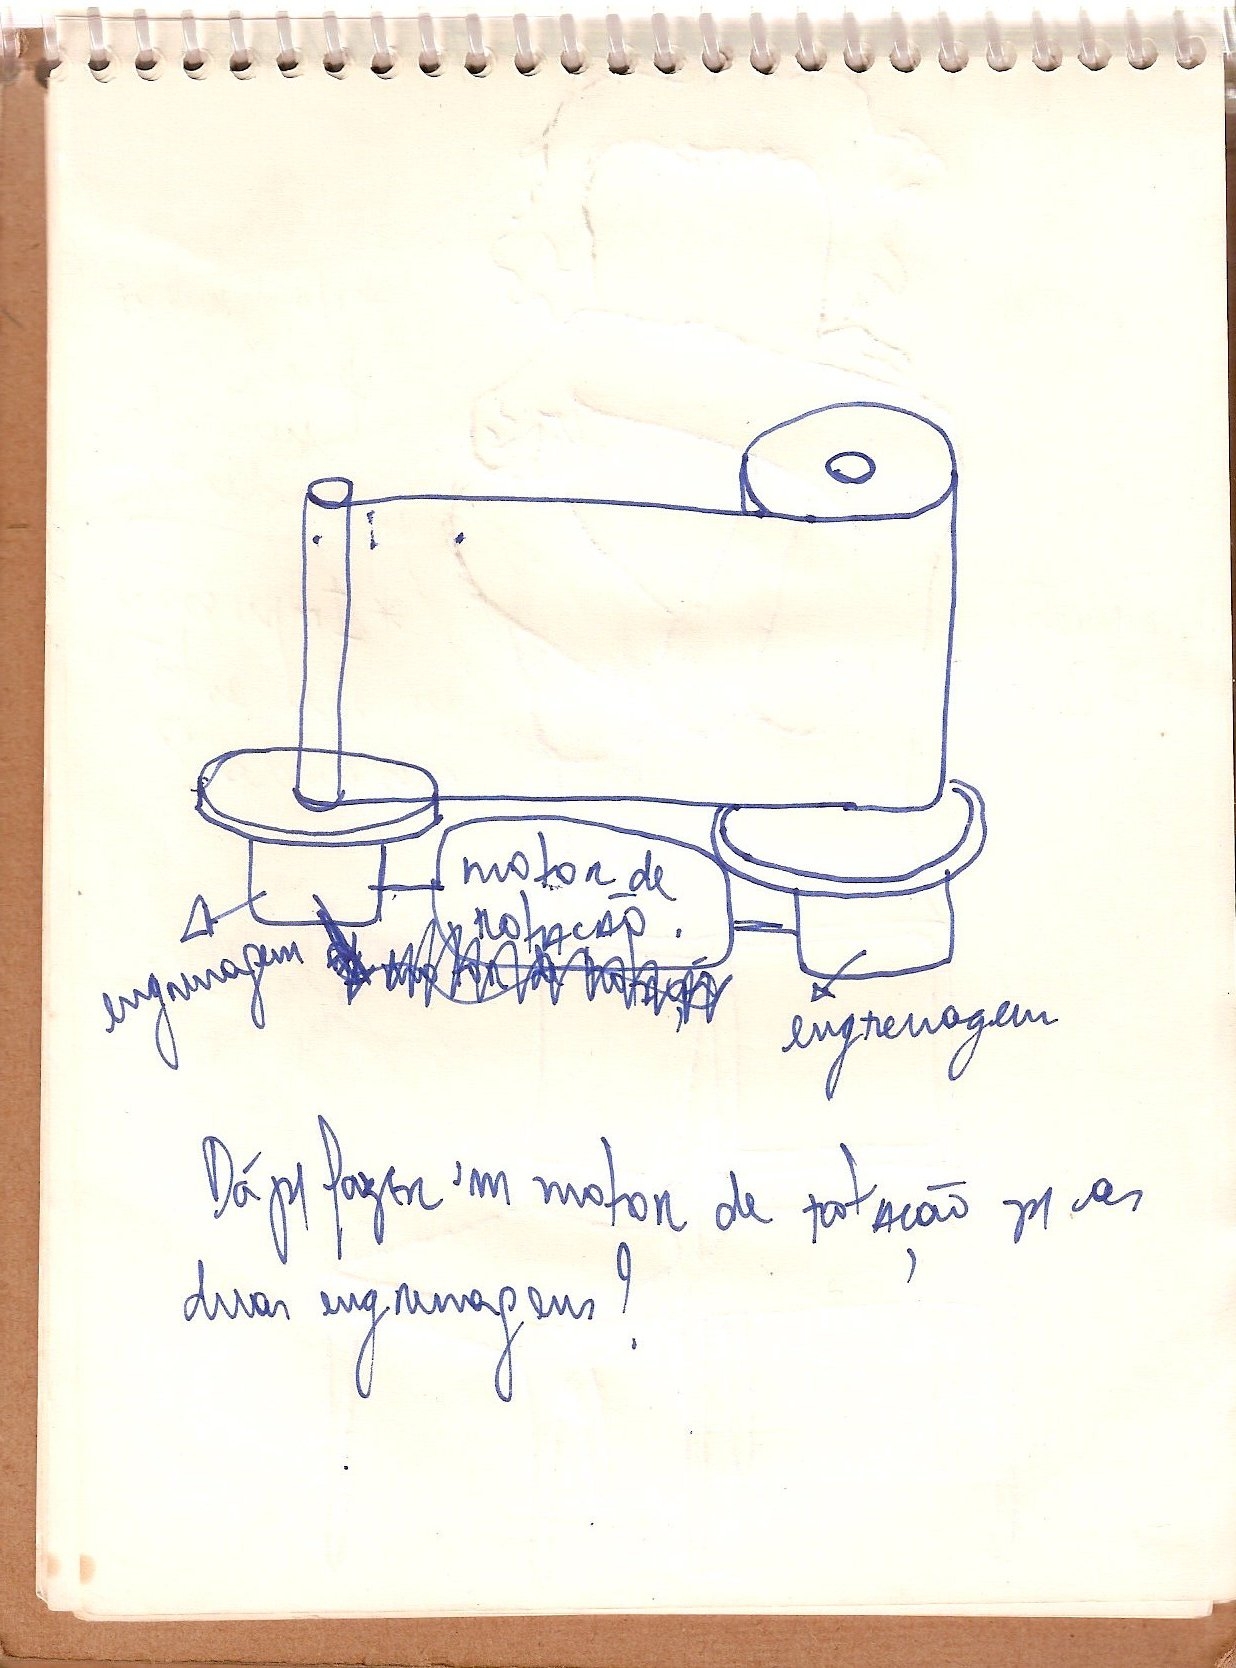 motor de
rotação.
engrenagem
engrenagem
Dá p/ fazer 'm motor de rotação p/ as
duas engrenagens?